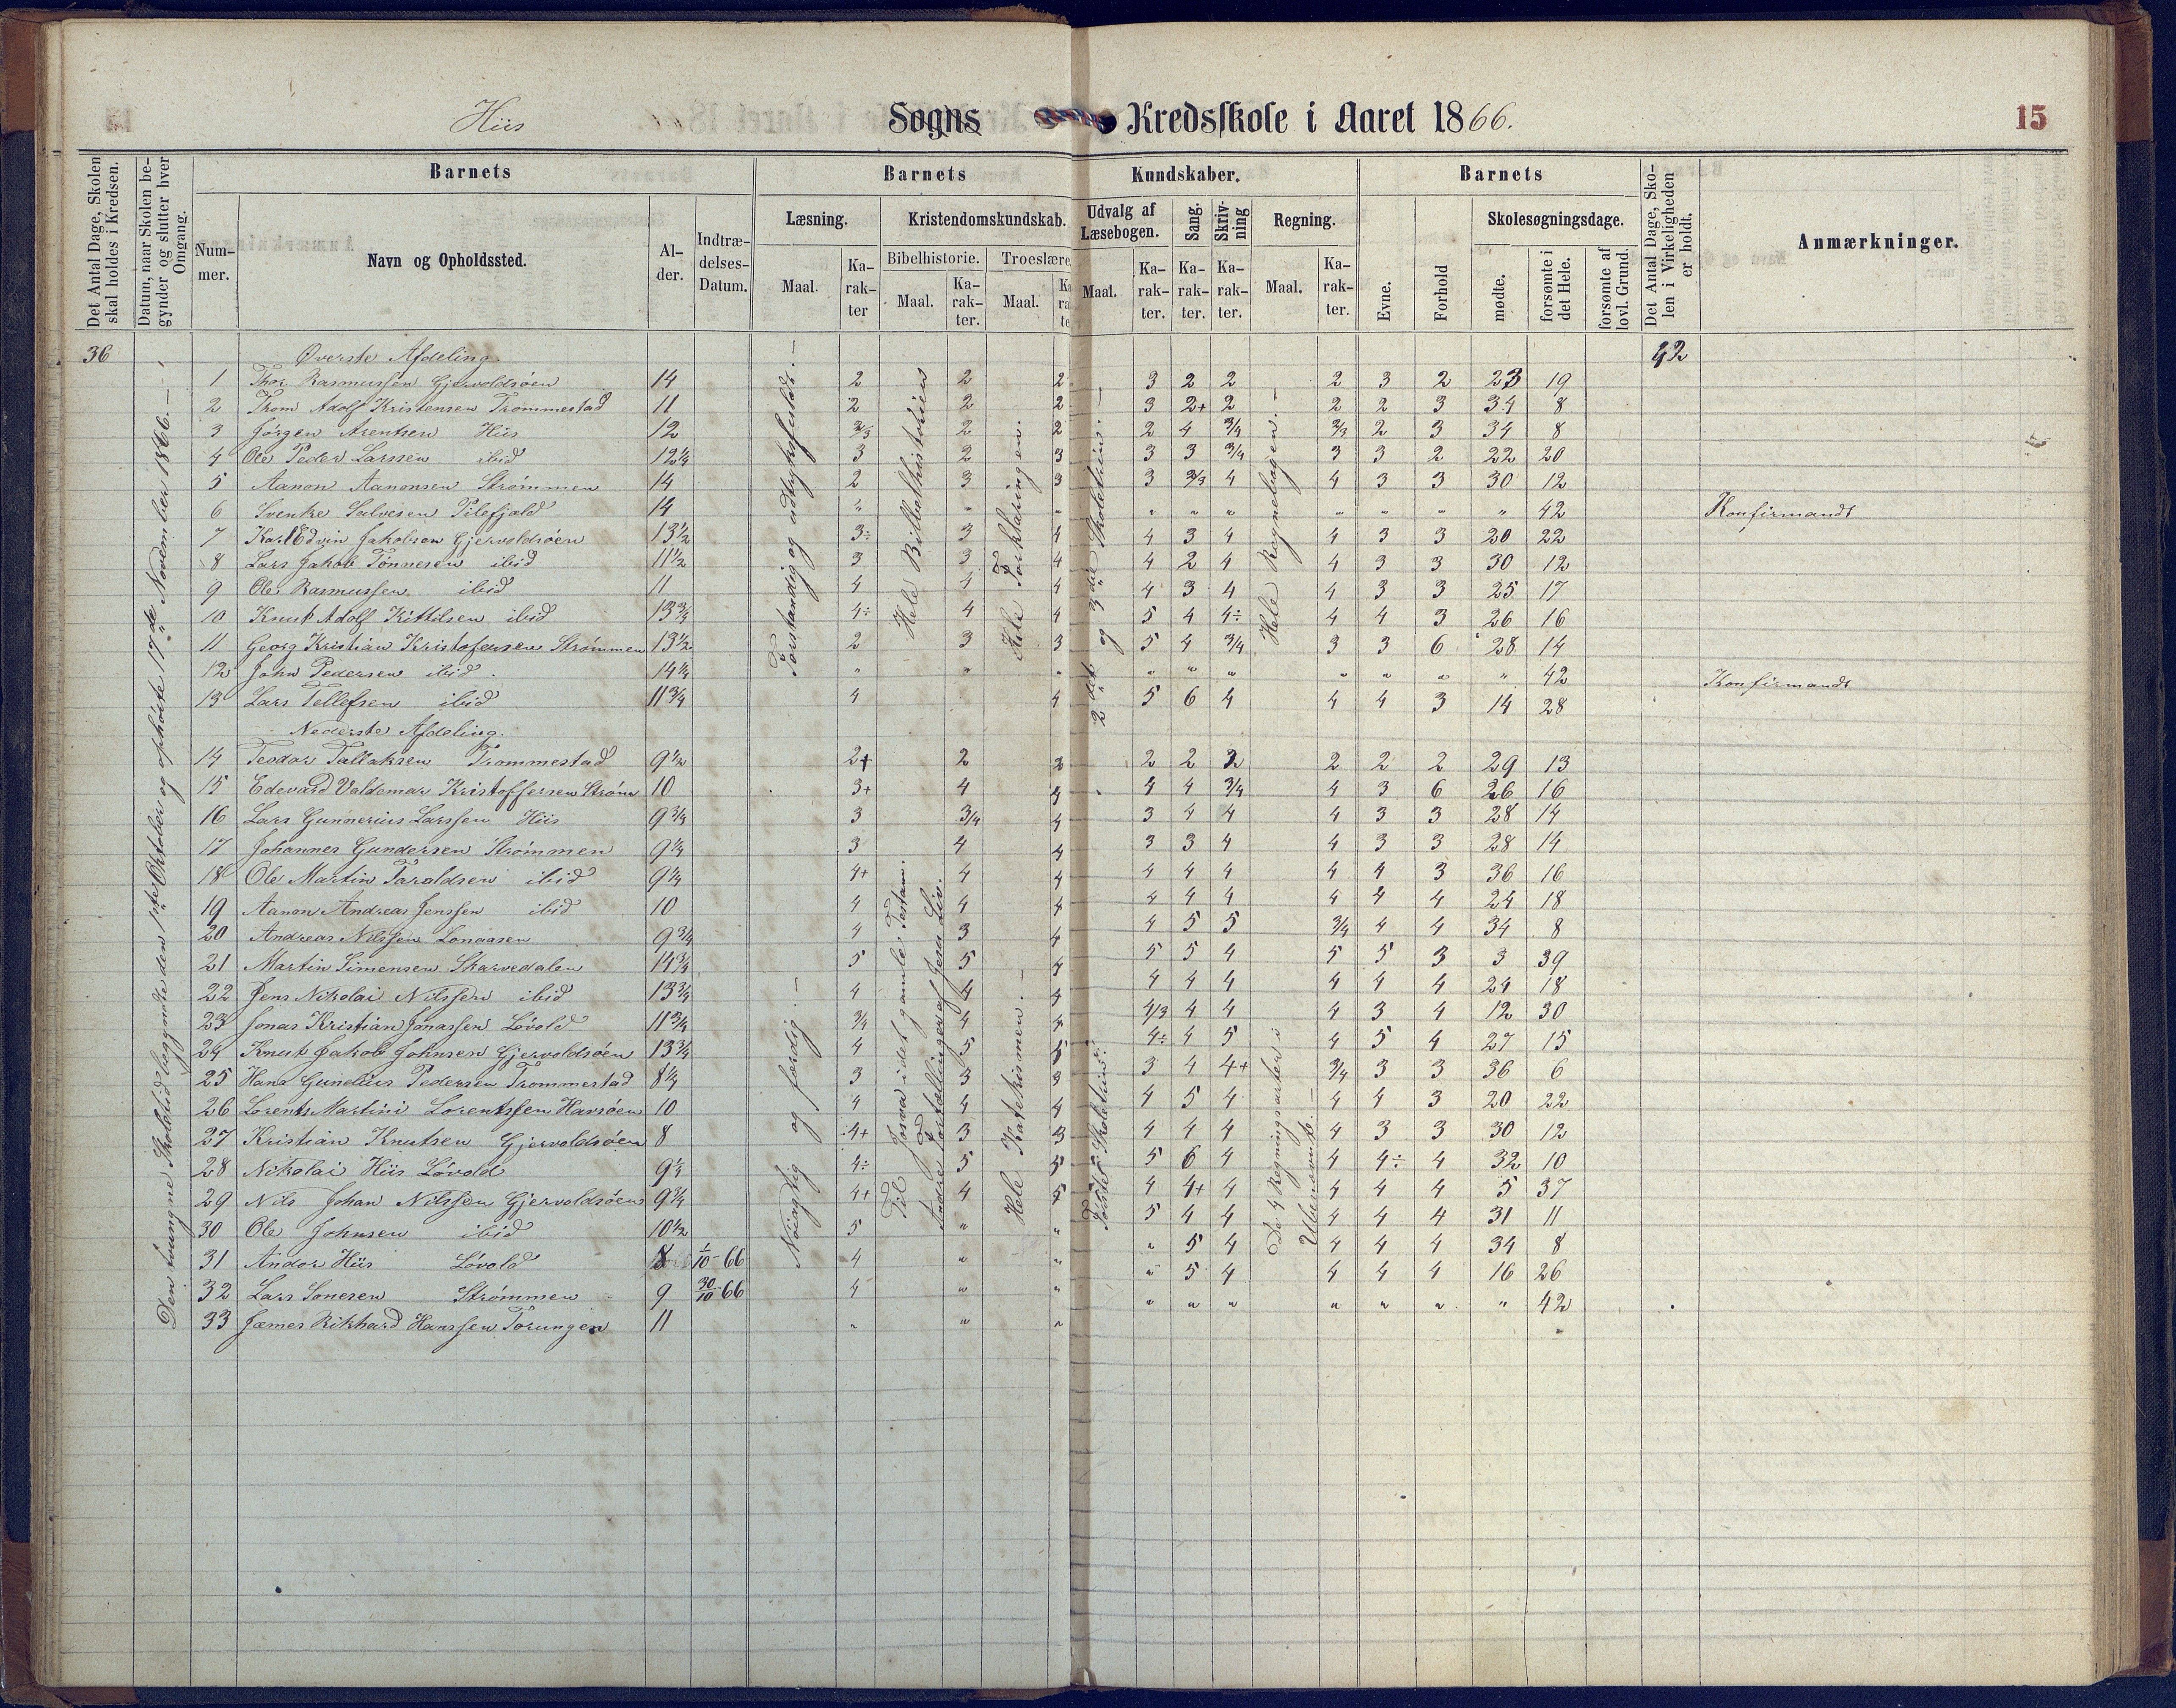 Hiis Sogns Kredsskole i Aaret 1866. 15
Det Antal Dage, Skolen skal holdes i Kredsen.
Datum, naar Skolen begynder og slutter hver Omgang.
Barnets
Nummer. Navn og Opholdssted. Alder. Indtrædelses-Datum.
Barnets Kundskaber.
Læsning. Kristendomskundskab. Udvalg af Læsebogen. Sang. Skrivning Regning.
Bibelhistorie. Troeslære.
Maal. Karakter Maal. Karakter. Maal. Maal. Karakter. Karakter. Karakter. Maal. Karakter.
Barnets
Evne. Forhold Skolesøgningsdage.
mødte. forsømte i det Hele. forsømte af lovl. Grund.
Det Antal Dage, Skolen i Virkeligheden er holdt.
Anmærkninger.
Den tvungne Skoletid begyndte den 1ste Oktober og ophørte 17de November 1866. —
Forstandig og udtryksfuldt. —
Hele Bibelhistorien
Hele Forklaringen.
2det og 3die Skoletrin. —
Hele Regnebogen. —
36 Øverste Afdeling. 42
1 Thor Rasmussen Gjervoldsøen 14 2 2 2 3 2 2 2 3 2 23 19
2 Thom Adolf Kristensen Trommestad 11 2 2 2 3 2+ 2 2 2 3 34 8
3 Jørgen Arentsen Hiis 12 2/3 2 2 2 4 3/4 3/3 2 3 34 8
4 Ole Peder Larssen ibid 12 1/4 3 2 3 3 3 3/4 3 3 2 22 20
5 Aanon Aanonsen Strømmen 14 2 3 3 3 3/3 4 4 3 3 30 12
6 Svenke Salvesen Pilefjeld 14 " " " " " " " " " " 42 Konfirmandt
7 Karl Edvin Jakobsen Gjervoldsøen 13 1/2 3÷ 3 4 4 3 4 4 3 3 20 22
8 Lars Jakob Tønnesen ibid 11 1/2 3 3 4 4 2 4 4 3 3 30 12
9 Ole Rasmussen ibid 11 4 4 4 4 3 4 4 3 3 25 17
10 Knut Adolf Kittilsen ibid 13 3/4 4÷ 4 4 5 4 4÷ 4 4 3 26 16
11 Georg Kristian Kristofersen Strømmen 13 1/2 2 3 3 5 4 3/4 3 3 6 28 14
12 John Pedersen ibid 14 1/4 " " " " " " " " " " 42 Konfirmandt
13 Lars Tellefsen ibid 11 3/4 4 4 5 6 4 4 4 3 14 28
Nederste Afdeling.
Nøiagtig og færdig. —
Til Josva i det gamle Testam.
Andre Fortællinger af Jesu Liv.
Hele Katekismen. —
Første Skoletrin.
De 4 Regningsarter i Ubenævnt. —
14 Teodor Tallaksen Trommestad 9 1/2 2+ 2 2 2 2 2 2 2 2 29 13
15 Edevard Valdemar Kristoffersen Strøm 10 3+ 4 4 4 4 3/4 4 3 6 26 16
16 Lars Gunnerius Larssen Hiis 9 3/4 3 3/4 4 3 4 4 4 3 3 28 14
17 Johannes Gundersen Strømmen 9 1/4 3 4 4 3 3 4 4 3 3 28 14
18 Ole Martin Taraldsen ibid 9 1/4 4+ 4 4 4 4 4 4 4 3 36 16
19 Aanon Andreas Jenssen ibid 10 4 4 4 4 4 4 4 4 4 24 18
20 Andreas Nilssen Longasen 9 3/4 4 3 4 4 5 5 3/4 4 4 34 8
21 Martin Simensen Skarvedalen 14 3/4 5 5 4 5 5 4 5 5 3 3 39
22 Jens Nikolai Nilssen ibid 13 3/4 4 4 4 4 4 4 4 4 4 24 18
23 Jonas Kristian Jonassen Løvold 11 3/4 3/4 4 4 4/3 4 4 4 3 4 12 30
24 Knut Jakob Johnsen Gjervoldsøen 13 3/4 4 5 5 4÷ 4 5 4 5 4 27 15
25 Hans Gunelius Pedersen Trommestad 8 1/4 3 3 3 3 4 4+ 3/4 3 3 36 6
26 Lorents Martini Lorentsen Havsøen 10 4 4 4 4 5 4 4 4 3 20 22
27 Kristian Knutsen Gjervoldsøen 8 4+ 3 3 4 4 4 4 3 3 30 12
28 Nikolai Hiis Løvold 9 1/4 4÷ 5 5 5 6 4 4 4÷ 4 32 10
29 Nils Johan Nilssen Gjervoldsøen 9 3/4 4+ 4 5 4 4+ 4 4 4 4 5 37
30 Ole Johnsen ibid 10 1/2 5 " " 5 4 4 4 4 4 31 11
31 Andor Hiis Løvold 8 1/10-66 4 " " " 5 4 4 4 4 34 8
32 Lars Sonesen Strømmen 9 30/10-66 4 " " " 5 4 4 4 4 16 26
33 Jæmes Rikhard Hanssen Torungen 11 " " " " " " " " " " 42